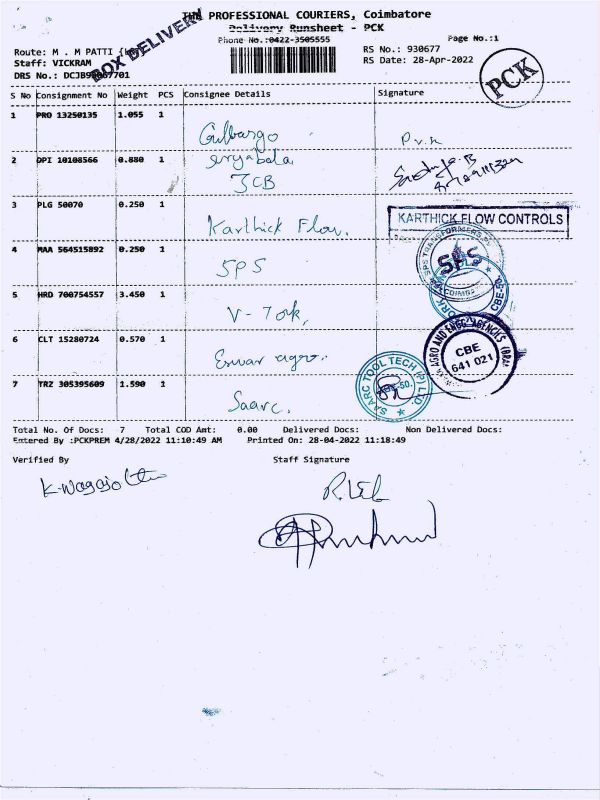 THE PROFESSIONAL COURIERS, Coimbatore
Delivery Runsheet - PCK
Phone No.:0422-3505555
Page No.:1
BOX DELIVERY
Route: M . M PATTI
RS No.: 930677
Staff: VICKRAM
RS Date: 28-Apr-2022
DRS No.:
PCK
S No Consignment No Weight PCS Consignee Details Signature
1 PRO 13250135 1.055 1
P.v.n
2 DPI 10108566 0.880 1 suryabala
JCB
3 PLG 50070 0.250 1 Karthick Flow.
KARTHICK FLOW CONTROLS
4 MAA 564515892 0.250 1 SPS
SPS TRANSFORMERS
SPS
5 HRD 700754557 3.450 1 V-Tork,
CBE-50.
6 CLT 15280724 0.570 1 Eswar agro.
AGRO AND ENGG AGENCIES
CBE
641 021
7 TRZ 305395609 1.590 1 Saarc.
SAARC TOOL TECH (P) LTD.
Total No. Of Docs: 7 Total COD Amt: 0.00 Delivered Docs: Non Delivered Docs:
Entered By :PCKPREM 4/28/2022 11:10:49 AM Printed On: 28-04-2022 11:18:49
Verified By Staff Signature